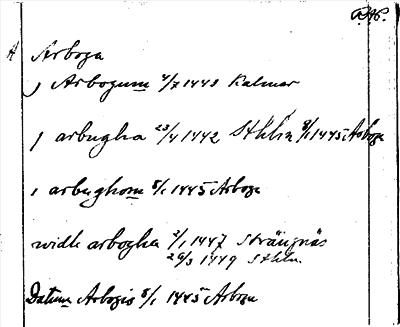 RAP.
A Arboga
j Arbogum 4/7 1448 Kalmar
j arbugha 23/4 1442 Sthlm 8/1 1445 Arboga
i arbughom 8/1 1445 Arboga
widh arbogha 2/1 1447 Strängnäs
26/3 1449 Sthlm
Datum Arbogis 8/1 1445 Arboga